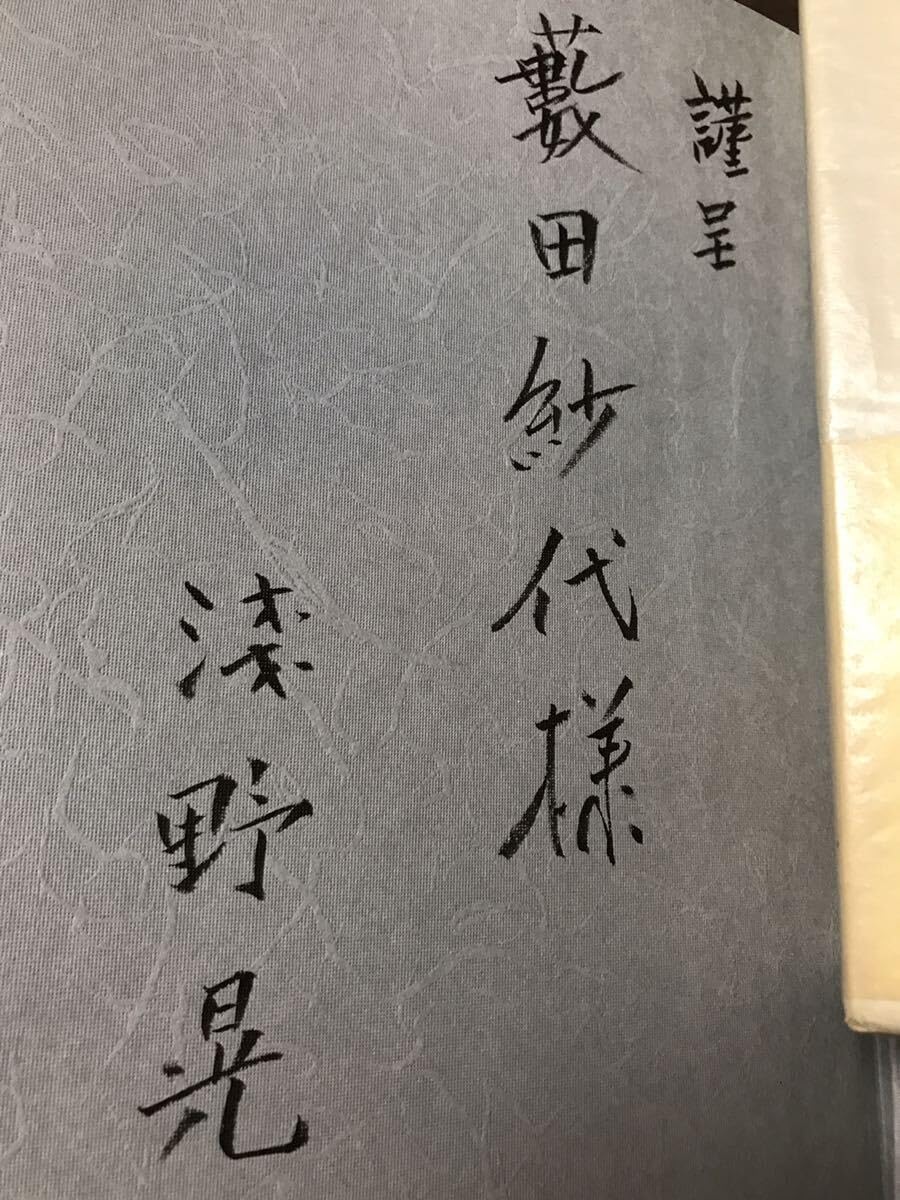 謹呈
藪田紗代様
淺野晃